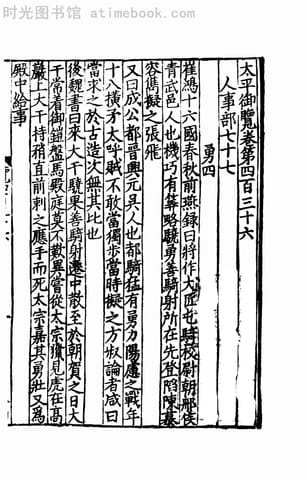 时光图书馆-www.atimebook.com
太平御覽卷第四百三十六
人事部七十七
勇四
崔鴻十六國春秋前燕錄曰將作大匠屯騎校尉朝那侯
青武邑人也機巧有筭略驍勇善騎射所在先登陷陳慕
容儁擬之張飛
又曰成公都晉興元吳人也都驍猛有勇力陽
之戰年
十八橫矛太呼賊不敢當獨步當時擬之方叔論者咸曰
當求之於古造次無其比也
後魏書曰來大干驍果善騎射
中散至於朝賀之日大
干常着御鎧盤馬殿庭莫不歎異當從太宗獵見虎在高
巖上大干持矟直前刺之應手而死太宗嘉其勇壯又爲
殿中給事